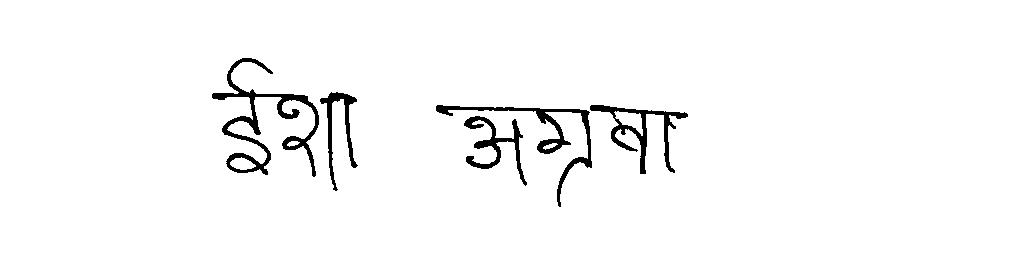 ईशा अग्रषा